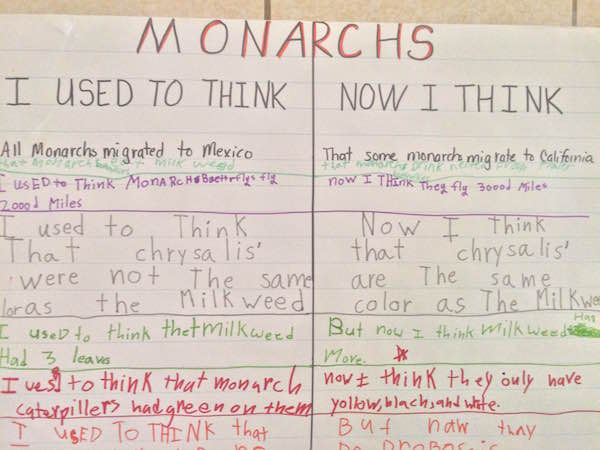 MONARCHS
I USED TO THINK
NOW I THINK
All Monarchs migrated to Mexico
That some monarchs migrate to California
that monarchs milk weed
that monarchs drink nectar from
I USED to Think MonARCH Buetterflys fly
2000d Miles
now I THink They fly 3000d Miles
I used to Think
That chrysalis'
were not The same
lor as the Milkweed
Now I Think
that chrysalis'
are The same
color as The Milkwee
I used to think thet milkweed
Had 3 leavs
But now I think milkweed Has
More.
I uesd to think that monarch
caterpillers had green on them
now I think they only have
yollow, black, and white.
I UsED TO THINK that
But now thay
Do Probosis